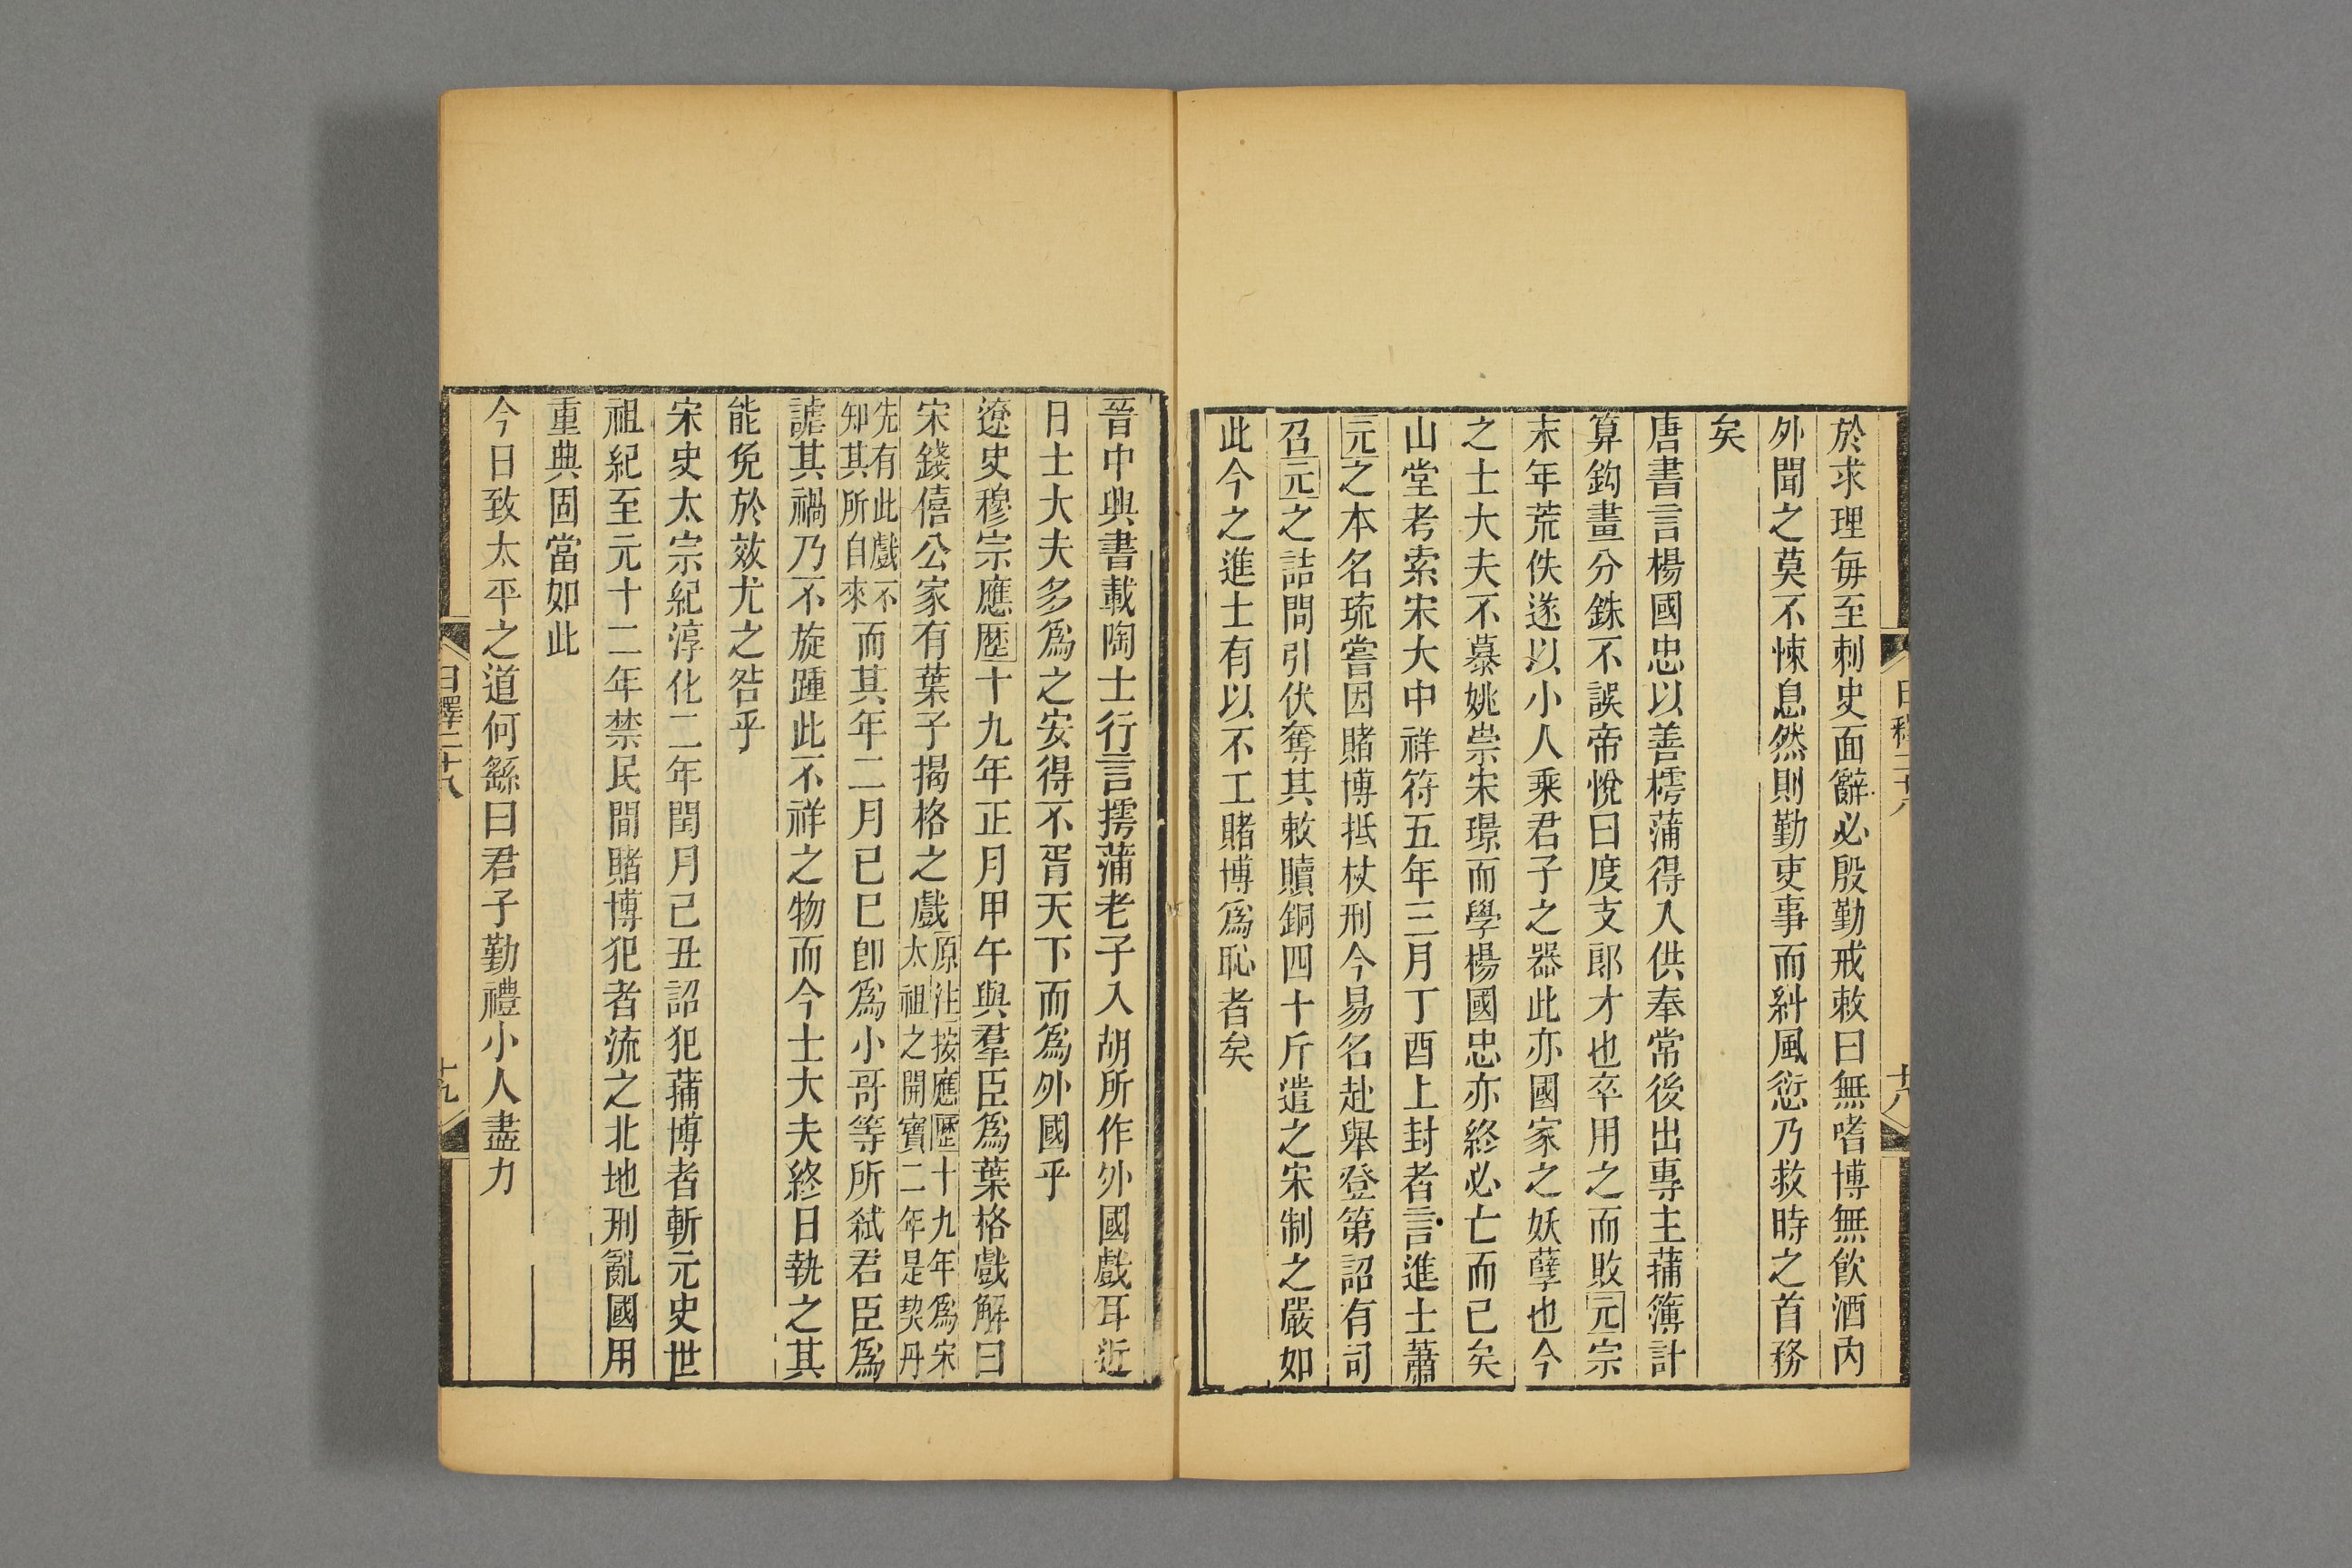 於求理每至刺史面辭必殷勤戒敕曰無嗜博無飮酒內
外聞之莫不悚息然則勤吏事而糾風愆乃救時之首務
矣
唐書言楊國忠以善樗蒲得入供奉常後出專主蒱簿計
算鈎畫分銖不誤帝悅曰度支郎才也卒用之而敗元宗
末年荒佚遂以小人乘君子之器此亦國家之妖孽也今
之士大夫不慕姚崇宋璟而學楊國忠亦終必亡而已矣
山堂考索宋大中祥符五年三月丁酉上封者言進士蕭
元之本名琉嘗因賭博抵杖刑今易名赴舉登第詔有司
召元之詰問引伏奪其敕贖銅四十斤遣之宋制之嚴如
此今之進士有以不工賭博爲恥者矣
晉中興書載陶士行言摴蒲老子入胡所作外國戲耳近
日士大夫多爲之安得不胥天下而爲外國乎
遼史穆宗應歷十九年正月甲午與羣臣爲葉格戲解曰
宋錢僖公家有葉子揭格之戲原注按應歷十九年爲宋太祖之開寶二年是契丹
先有此戲不知其所自來而其年二月已巳卽爲小哥等所弑君臣爲
謔其禍乃不旋踵此不祥之物而今士大夫終日執之其
能免於效尤之咎乎
宋史太宗紀淳化二年閏月己丑詔犯蒱博者斬元史世
祖紀至元十二年禁民間賭博犯者流之北地刑亂國用
重典固當如此
今日致太平之道何繇曰君子勤禮小人盡力
日釋二十八
十九